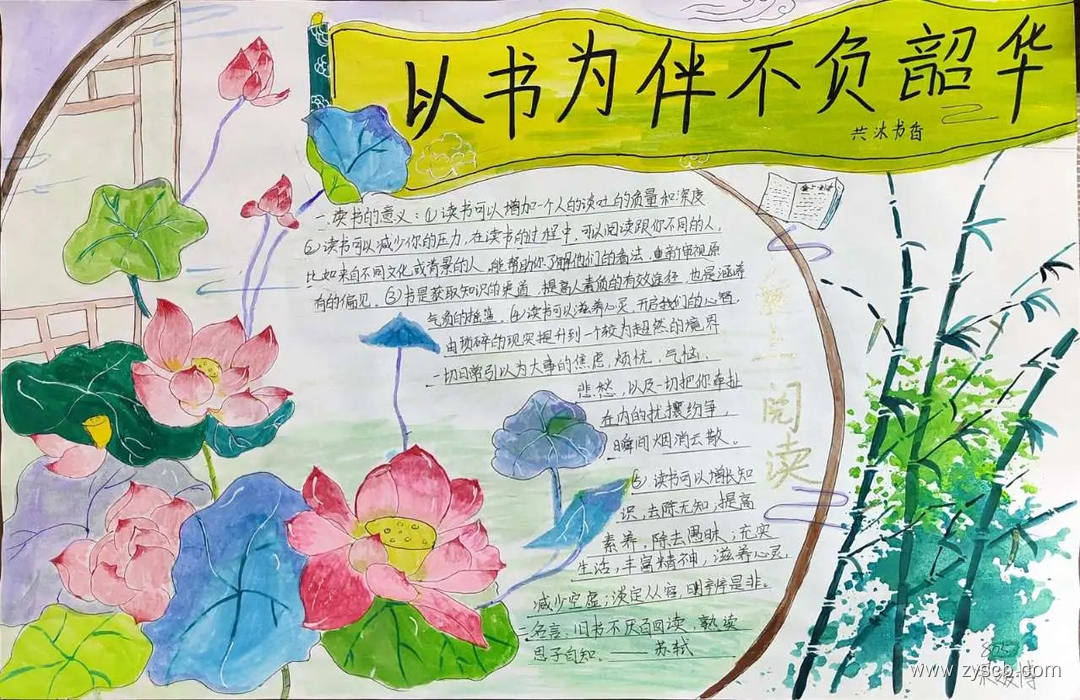 以书为伴不负韶华
共沐书香
一.读书的意义:①读书可以增加一个人的谈吐的质量和深度
②读书可以减少你的压力,在读书的过程中,可以阅读跟你不同的人,
比如来自不同文化或背景的人,能帮助你了解他们的看法,重新审视原
有的偏见。③书是获取知识的渠道,提高人素质的有效途径,也是涵养
气质的摇篮。④读书可以滋养心灵,开启我们的心智.
由琐碎的现实提升到一个较为超然的境界
一切日常引以为大事的焦虑,烦忧、气恼、
悲愁,以及一切把你牵扯
在内的扰攘纷争,
瞬间烟消云散。
⑤读书可以增长知
识,去除无知,提高
素养,除去愚昧;充实
生活,丰富精神,滋养心灵,
减少空虚;淡定从容,明辨是非。
名言:旧书不厌百回读,熟读
思子自知。——苏轼
爱上
阅读
www.zyscb.com